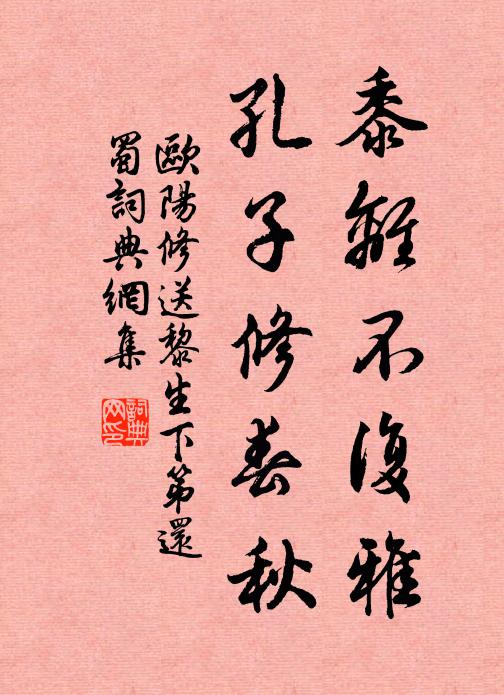 黍離不復雅
孔子修春秋
歐陽修送黎生下第還
蜀詞典網集
詞典网印